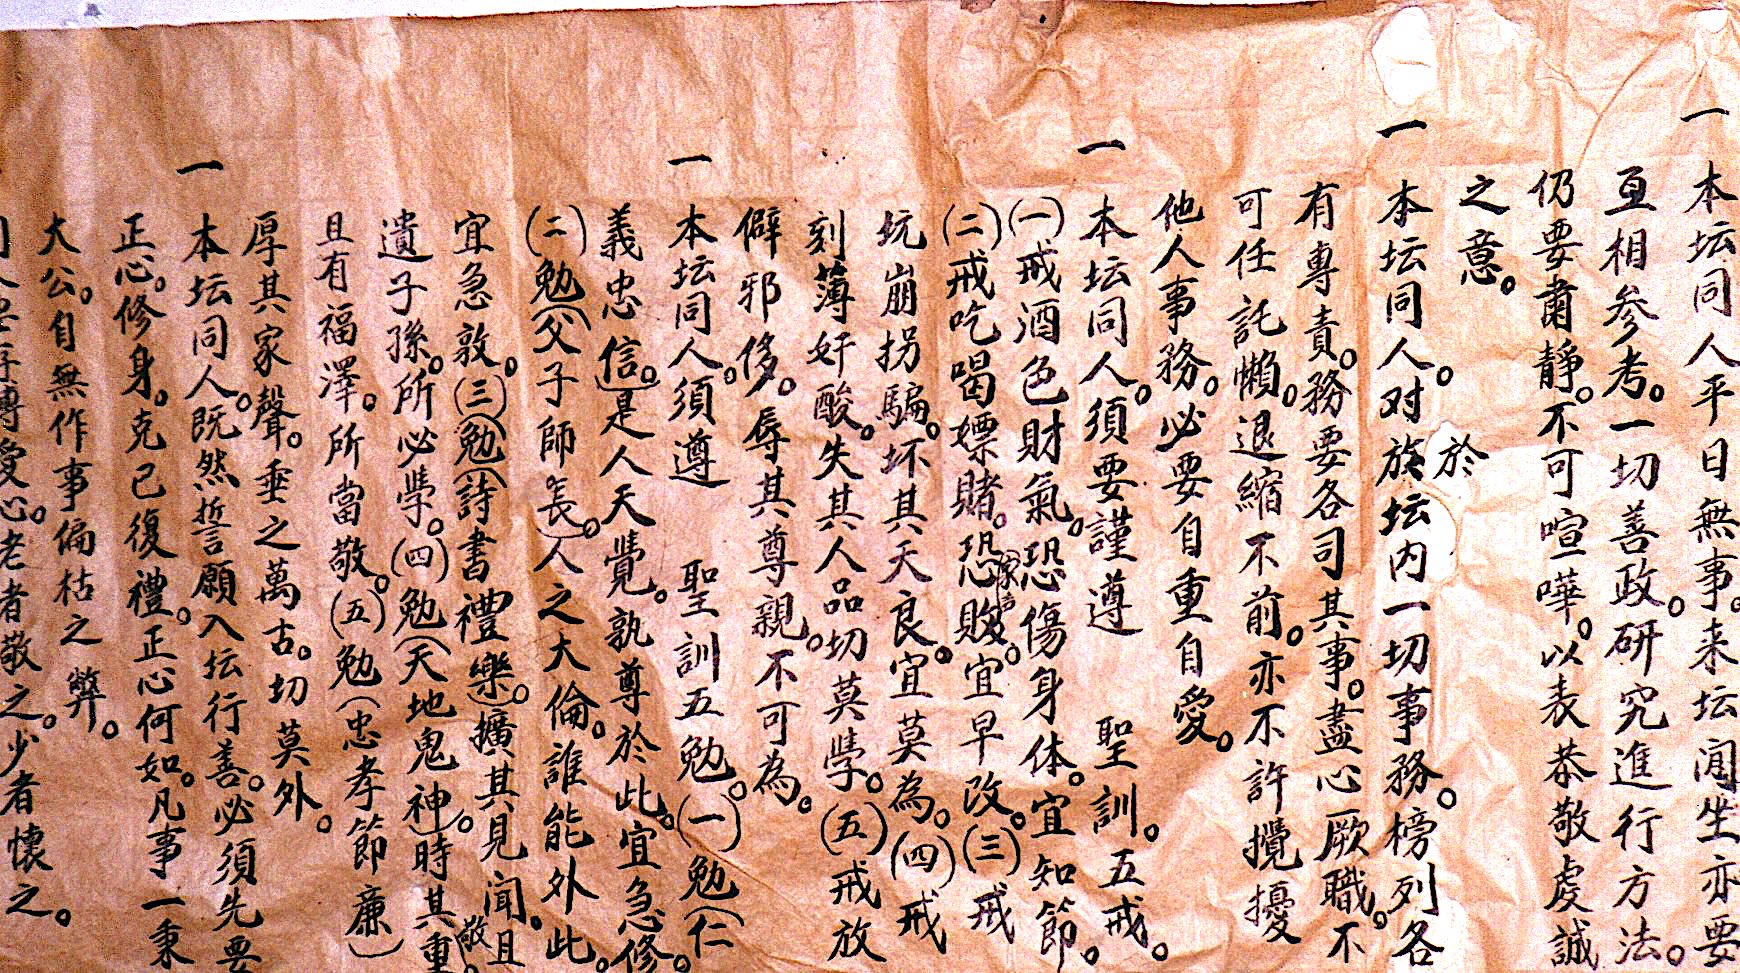 一 本坛同人平日無事。来坛闲坐亦要
互相参考。一切善政。研究進行方法。
仍要肅靜。不可喧嘩。以表恭敬虔誠
之意。
一 本坛同人。对於族坛内一切事務。榜列各
有專責。務要各司其事。盡心厥職。不
可任託懶。退縮不前。亦不許攪擾
他人事務。必要自重自愛。
一 本坛同人。須要謹遵 聖訓。五戒。
(一)戒酒色財氣。恐傷身体。宜知節。
(二)戒吃喝嫖賭。恐家声敗。宜早改。(三)戒
坑崩拐騙。坏其天良。宜莫為。(四)戒
刻薄奸酸。失其人品。切莫學。(五)戒放
僻邪侈。辱其尊親。不可為。
一 本坛同人。須遵 聖訓五勉。(一)勉(仁
義忠信)。是人天覺。孰尊於此。宜急修。
(二)勉(父子師長)。人之大倫。誰能外此。
宜急敦。(三)勉(詩書禮樂)。擴其見聞。且
遺子孫。所必學。(四)勉(天地鬼神)。時其重敬。
且有福澤。所當敬。(五)勉(忠孝節廉)
厚其家聲。垂之萬古。切莫外。
一 本坛同人。既然誓願入坛行善。必須先要
正心。修身。克己復禮。正心何如。凡事一秉
大公。自無作事偏枯之弊。
愛心。老者敬之。少者懷之。